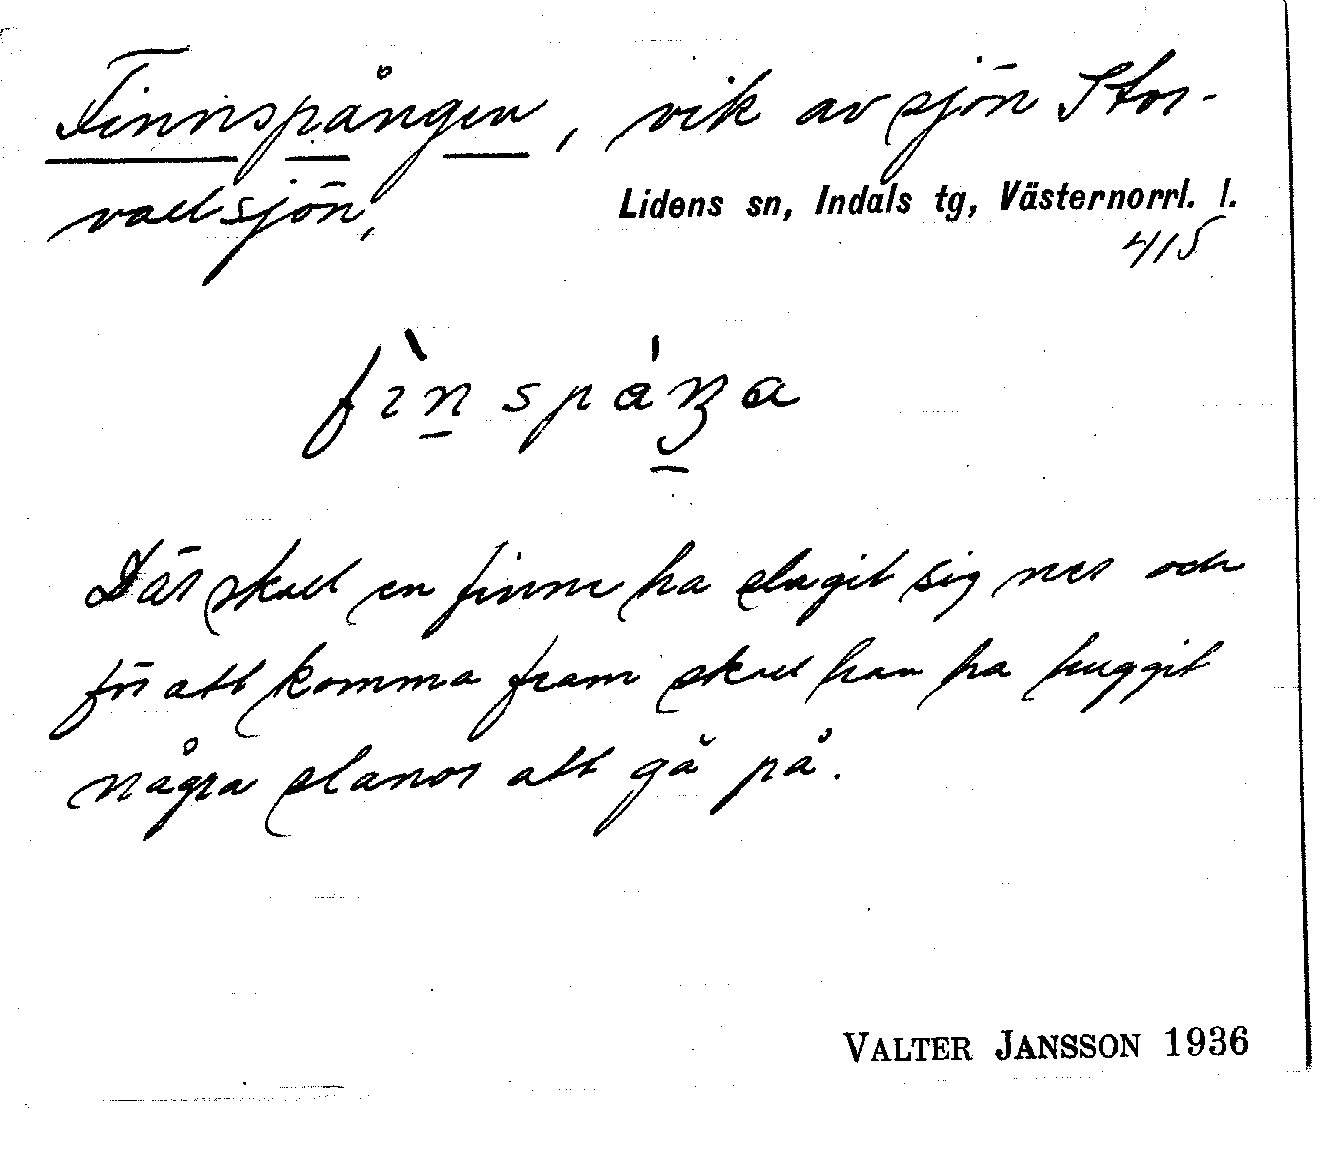 Finnspången, vik av sjön Stor-
vallsjön,
Lidens sn, Indals tg, Västernorrl. l.
415
fìnspáŋa
Där skall en finne ha slagit sig ner och
för att komma fram skall han ha huggit
några slanor att gå på.
VALTER JANSSON 1936